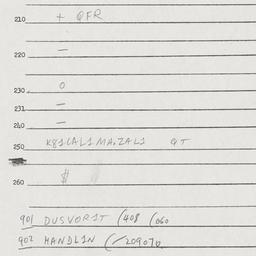 210 + QFR
220 —
230 0
231 —
240 —
K81CAL1MA.ZAL1 QT
250
260 $
901 DUSVORIT (408 (060
902 HANDLIN (/209070